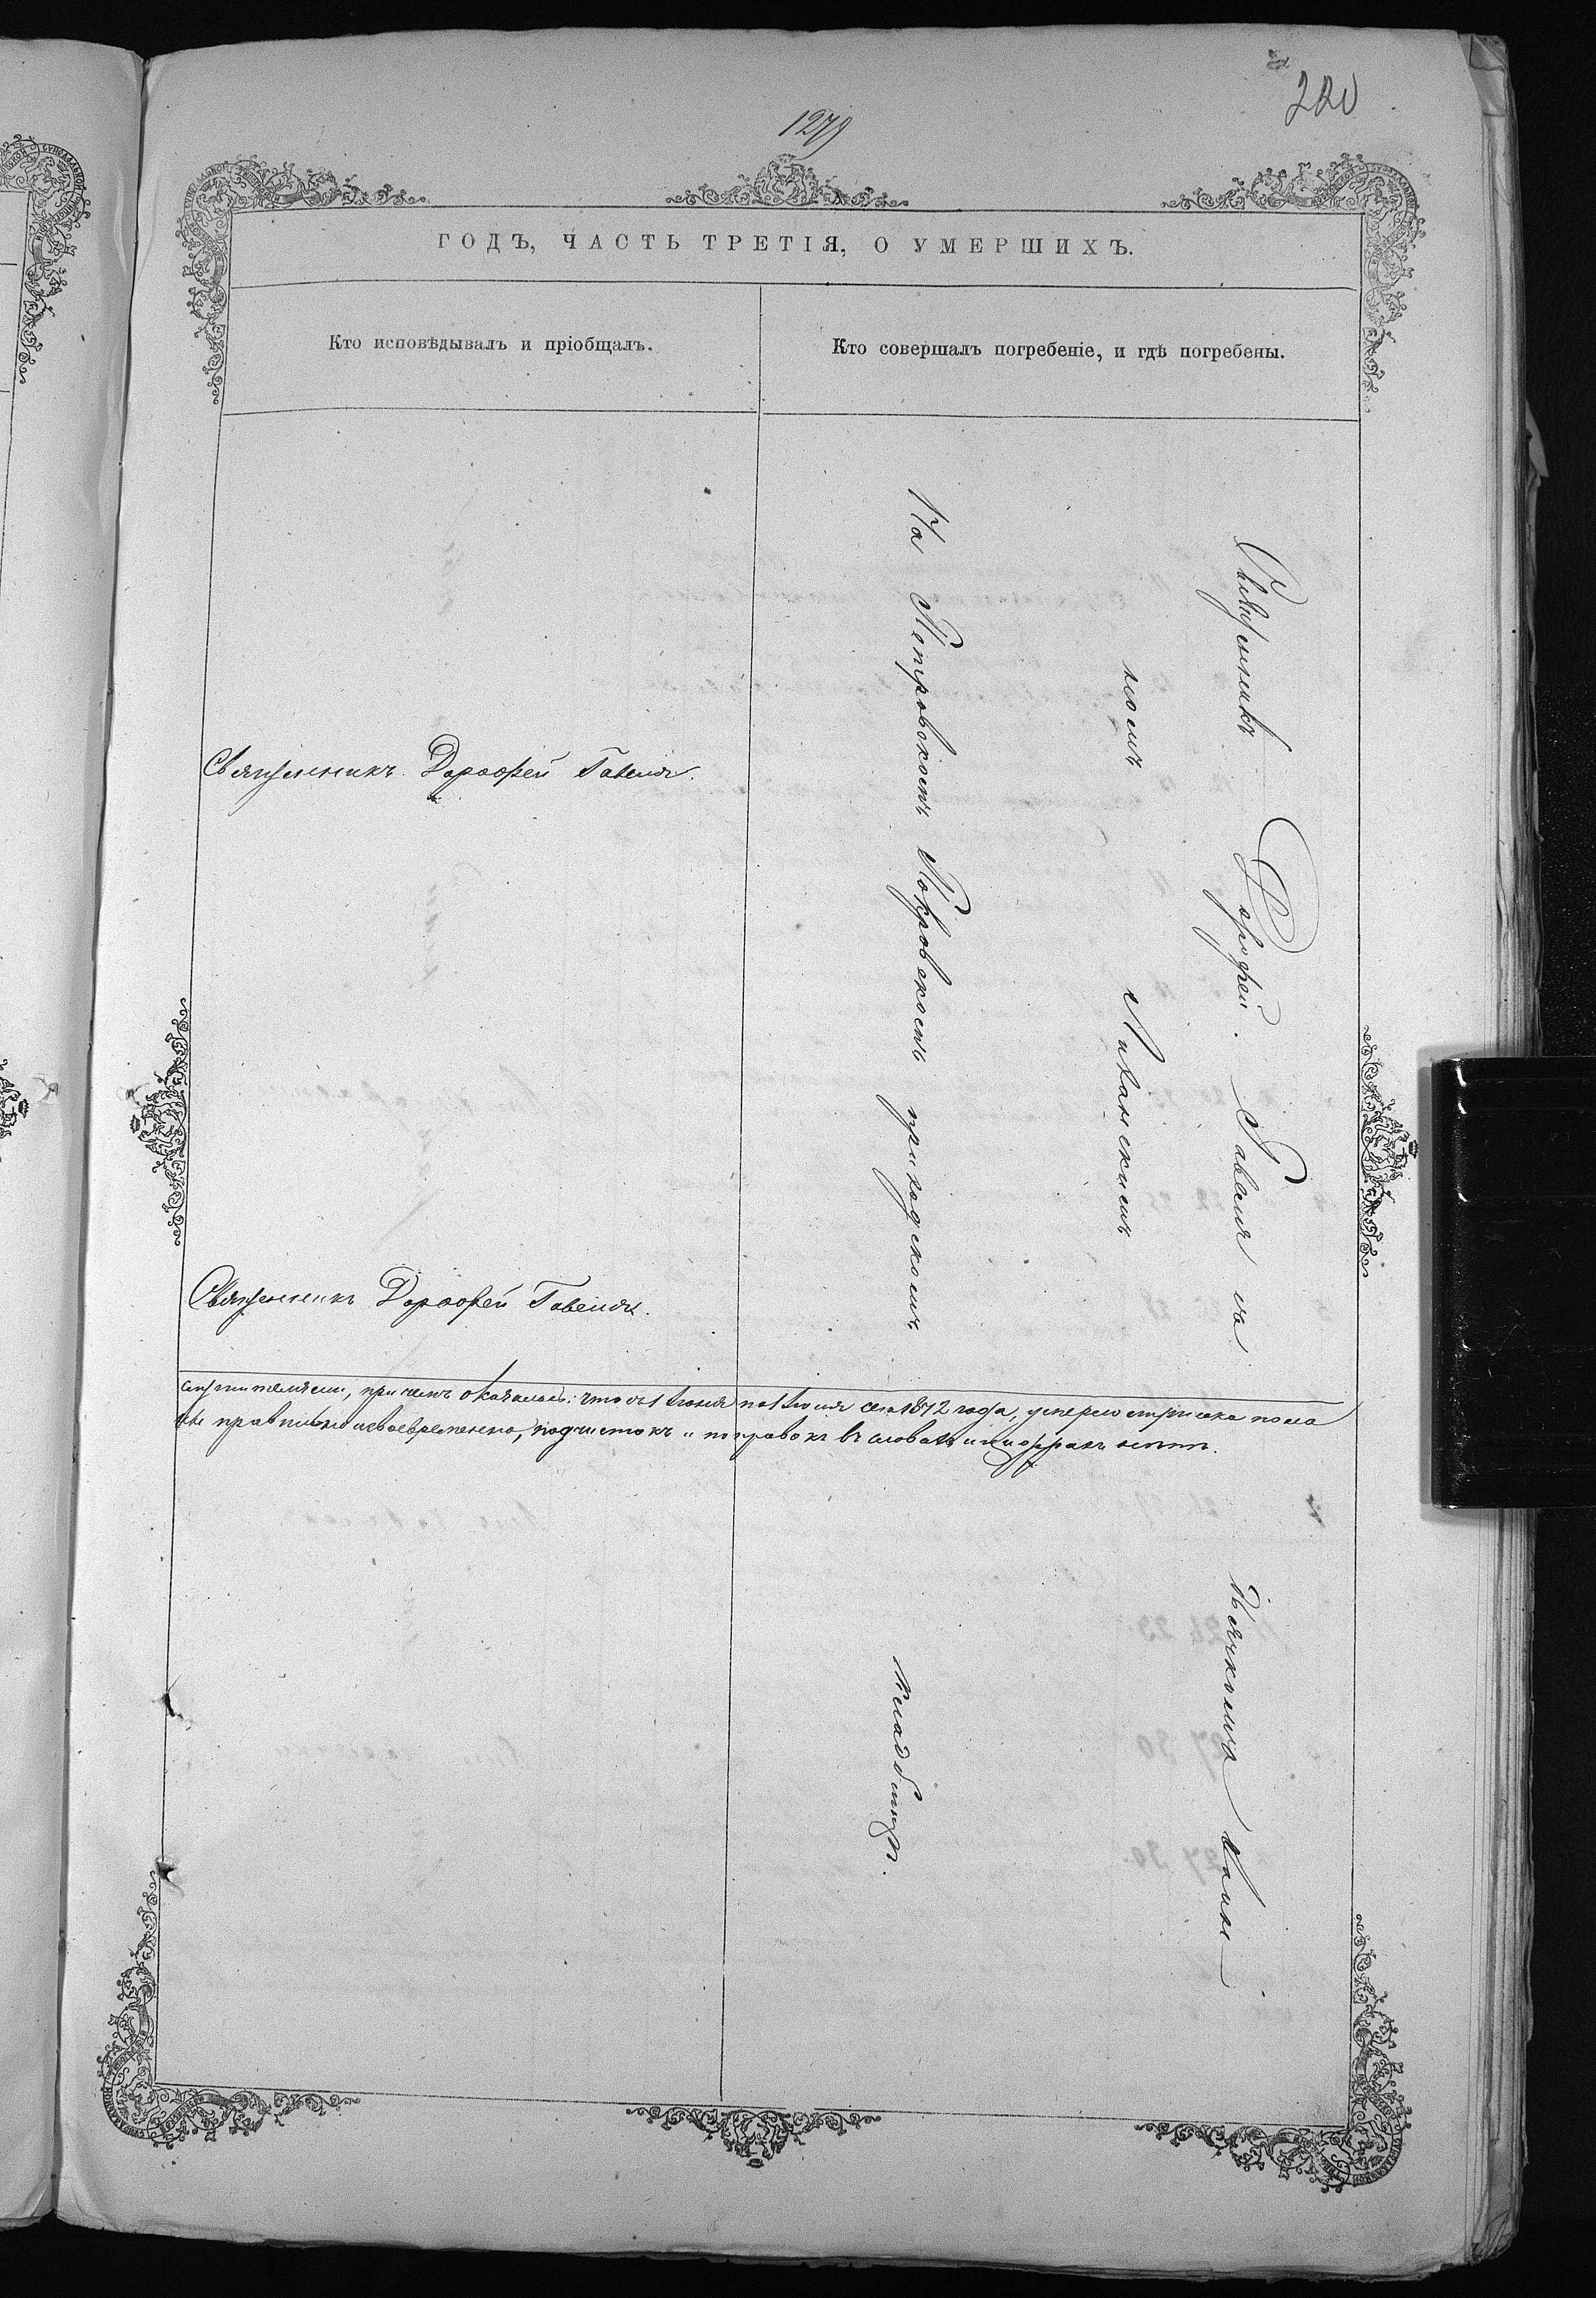 220
1279
ГОДЪ, ЧАСТЬ ТРЕТІЯ, О УМЕРШИХЪ.
Кто исповѣдывалъ и пріобщалъ.
Кто совершалъ погребеніе, и гдѣ погребены.
Священникъ Дорофей Гавеля.
Священникъ Дорофей Гавеля.
Священникъ Дорофей Гавеля съ
номъ
На Петровскомъ Покровскомъ приходскомъ
причемъ оказалось: что съ 1 Іюня по 1 Іюля сего 1872 года, умерло мужеска пола
правильно и своевременно, подчистокъ и поправокъ въ словахъ и цифрахъ нѣтъ.
кладбищѣ.